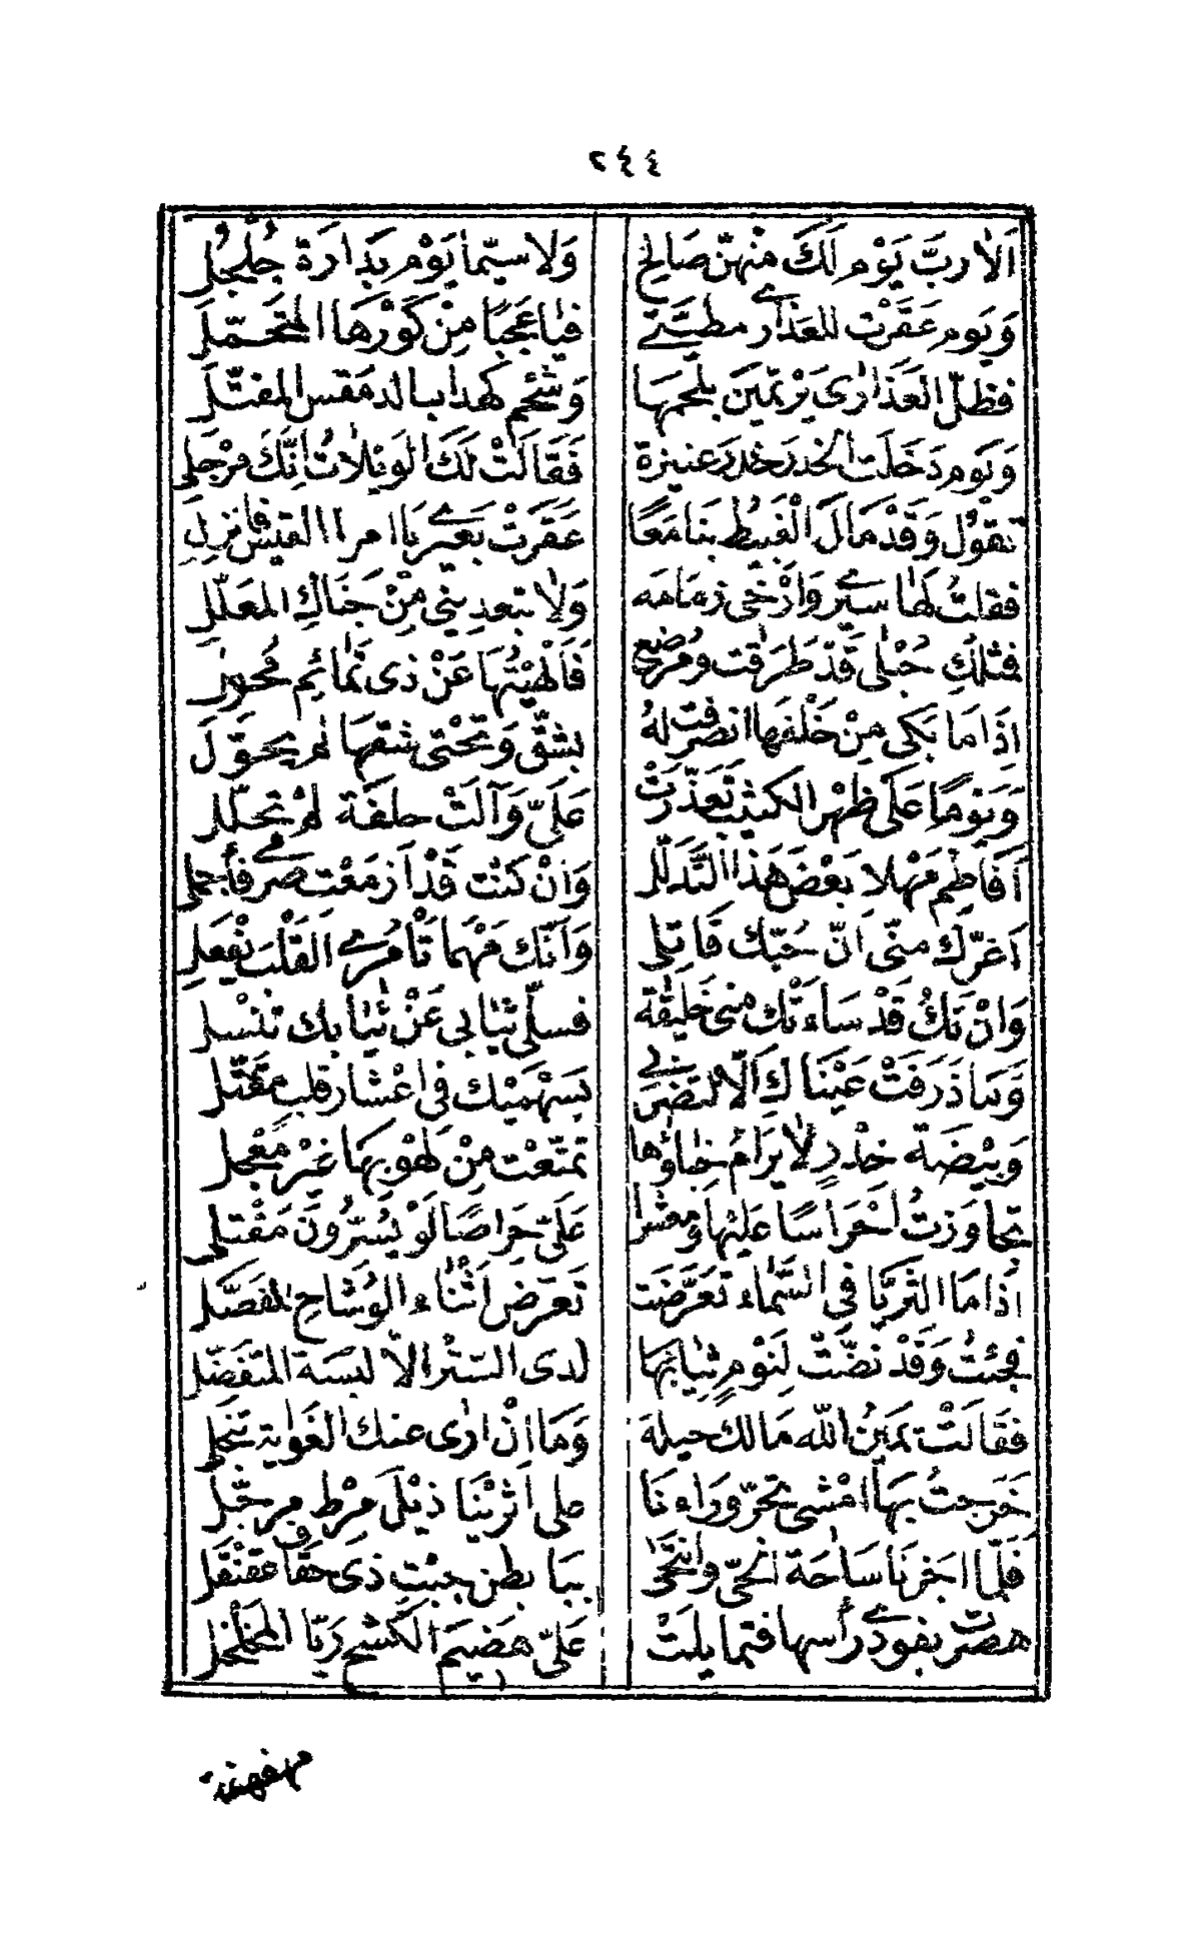 ٢٤٤
اَلا ربّ يَوْم لَكَ منْهنّ صَالحٍ وَلا سيّما يَوْم بِدَارَة جُلْجُل
وَيَوم عَقَرْت للعَذارى مطيّتى فيا عَجَبًا مِنْ كَوْرهَا المتَحَمّل
فظلّ العَذَارى يَرْتمّينَ بلَحْمهَا وَشَحْم كهداب الدمَقس المفتّل
وَيَوم دَخَلت الخدر خدْر عنيزة فَقَالَتْ لَكَ الوَيْلاتُ انّكَ مرْجلى
تقولُ وَقَدْ مَالَ الْغَبيط بنا مَعًا عَقَرْتَ بَعيرى يَا امرا القيس فانزل
فقلتُ لهَا سيرى وَارْخى زمَامَه وَلا تبعدينى مِنْ جَنَاكِ المعَلّل
فمثلكِ حُبْلى قَدْ طَرَقت ومُرْضِع فَاَلهيْتُهَا عَنْ ذى تمَائِم مُحْول
اِذَا مَا بَكى مِنْ خَلْفهَا انصَرفت لهُ بشقّ وَتحْتى شقّهَا لم يحَوّل
وَيَوْمًا عَلَى ظهْر الكثيب تعَذّرَتْ عَلَىّ وَآلَتْ حلفَة لمْ تحَلّل
اَفَاطِم مَهْلا بَعْضَ هَذا التَّدَلّل وَانْ كنْت قَدْ اَزمَعْت صَرْمى فأجملى
اَغرّك منّى انّ حُبّك قَاتِلى وَاَنّك مَهْمَا تَأمُرى القَلْبَ يَفْعَلِ
وَانْ تَكُ قَدْ سَاءَتْك منى خَليقَة فسلّى ثيَابى عَنْ ثيَابِك تنْسل
وَمَا ذَرَفَتْ عَيْنَاكِ اَلّا لتضْربى بسَهْمَيْك فى اعْشار قلب مقَتّل
وَبيْضَة خِدْرٍ لا يرَامُ خبَاؤُها تمتّعْت مِنْ لهْو بهَا غيْر معْجل
تجاوَزتُ اَحْرَاسًا عَليْهَا ومَعْشرا عَلَىّ حِرَاصًا لَوْ يُسرّونَ مَقْتلى
اِذَا مَا الثريّا فى السَّمَاء تعَرَّضَت تعَرّضَ اَثْنَاء الوُشَاحِ المفَصّل
فجئْتُ وَقَدْ نَضّتْ لنَوْمٍ ثيَابَهَا لدى السّتْر الاّ لبْسَة المتفَضّل
فقَالتْ يَمينُ الله مَا لك حيلَة وَمَا انْ ارى عنك الغَوَاية تنْجلى
خَرجْتُ بهَا امْشى تجرّ وَرَاءنَا على اثَرَيْنَا ذَيْلَ مرْطٍ مرجّل
فَلمّا اجزنَا سَاحَة الحَىّ وانتَحَى بنَا بطن خبْت ذى حقَاف عقَنْقل
هصَرْت بفودى رَأسهَا فتمَايلَتْ عَلَىّ هَضيمَ الكشْح رَيّا المخَلْخل
مهفهفة